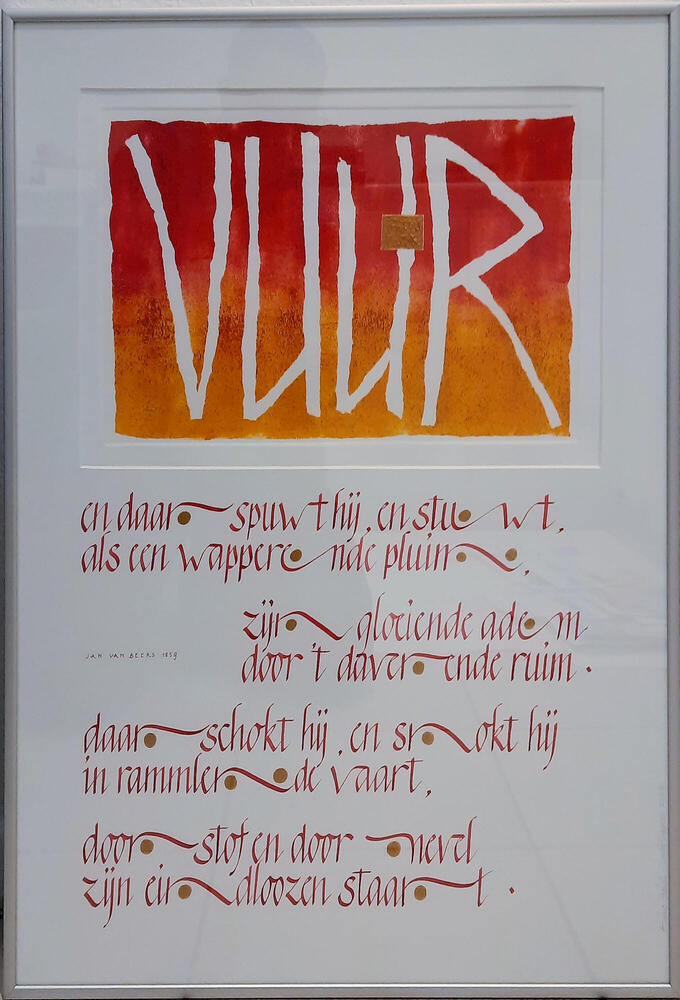 VUUR
en daar spuwt hij, en stuwt,
als een wapperende pluim,
zijn gloeiende adem
JAN VAN BEERS 1859
door 't daverende ruim.
daar schokt hij, en snokt hij
in rammlende vaart,
door stof en door nevel
zijn eindloozen staart.